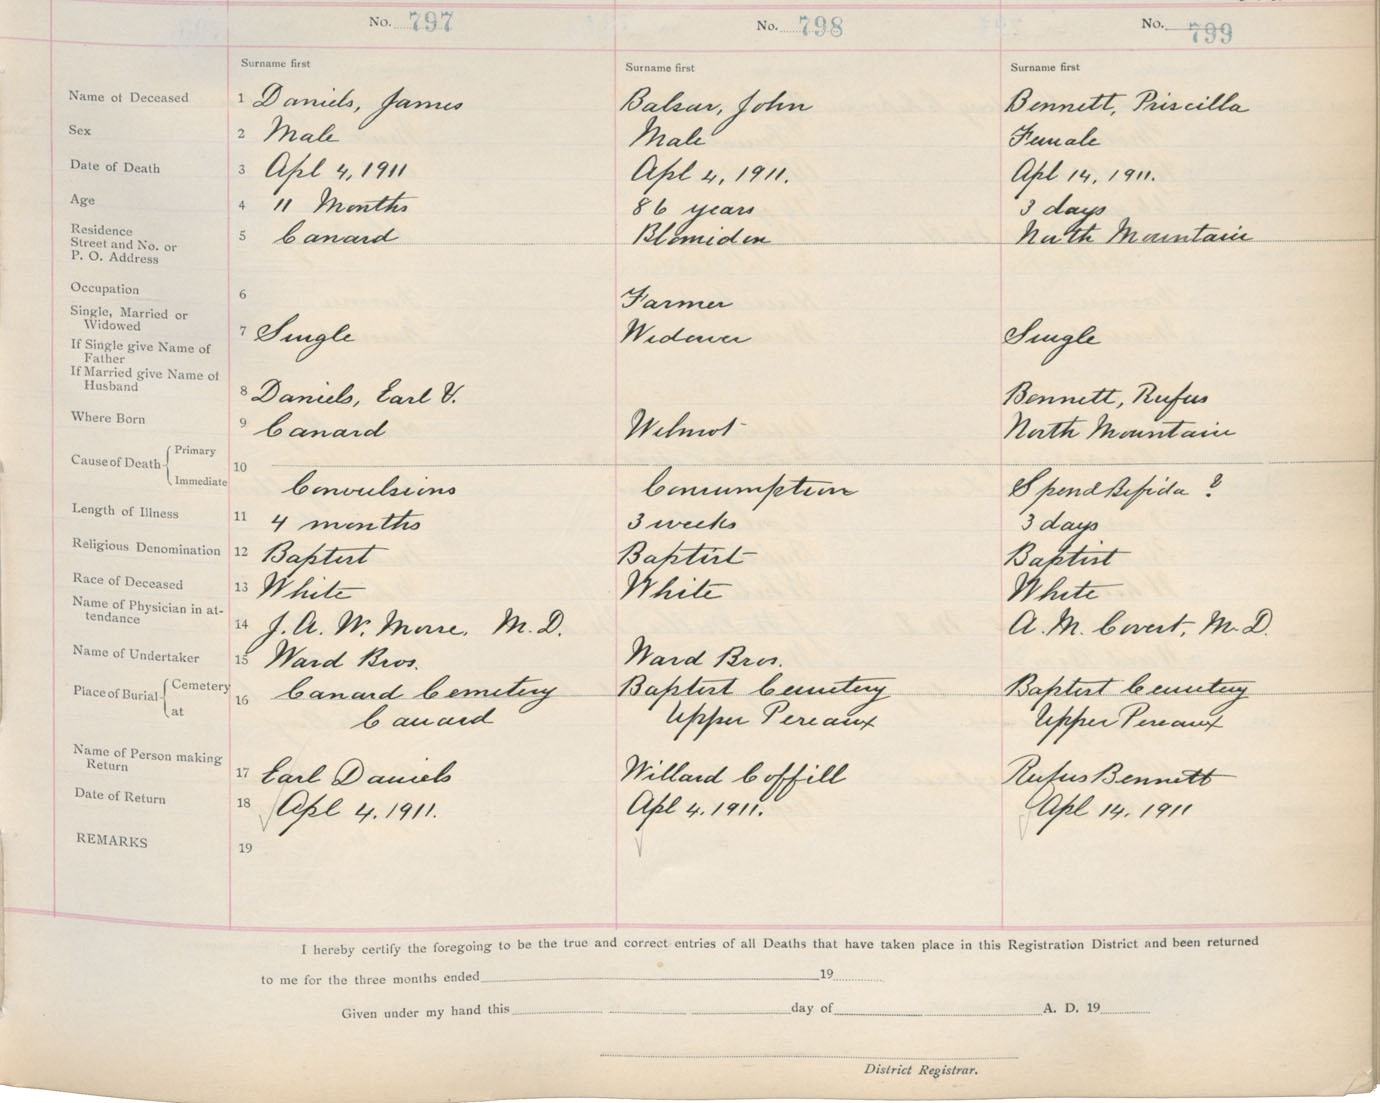 No. 797 No. 798 No. 799
Surname first Surname first Surname first
Name of Deceased 1 Daniels, James Balsar, John Bennett, Priscilla
Sex 2 Male Male Female
Date of Death 3 Apl 4, 1911 Apl 4, 1911. Apl 14, 1911.
Age 4 11 Months 86 years 3 days
Residence
Street and No. or 5 Canard Blomidon North Mountain
P. O. Address
Occupation 6 Farmer
Single, Married or
Widowed 7 Single Widower Single
If Single give Name of
Father
If Married give Name of
Husband
8 Daniels, Earl V. Bennett, Rufus
Where Born 9 Canard Wilmot North Mountain
Primary
Cause of Death 10
Immediate Convulsions Consumption Spend Bifida ?
Length of Illness 11 4 months 3 weeks 3 days
Religious Denomination 12 Baptist Baptist Baptist
Race of Deceased 13 White White White
Name of Physician in at-
tendance 14 J. A. W. Morse, M. D. A. M. Covert, M. D.
Name of Undertaker 15 Ward Bros. Ward Bros.
Place of Burial Cemetery 16 Canard Cemetery Baptist Cemetery Baptist Cemetery
at Canard Upper Pereaux Upper Pereaux
Name of Person making
Return 17 Earl Daniels Willard Coffill Rufus Bennett
Date of Return 18 Apl 4. 1911. Apl 4. 1911. Apl 14. 1911
REMARKS 19
I hereby certify the foregoing to be the true and correct entries of all Deaths that have taken place in this Registration District and been returned
to me for the three months ended 19
Given under my hand this day of A. D. 19
District Registrar.